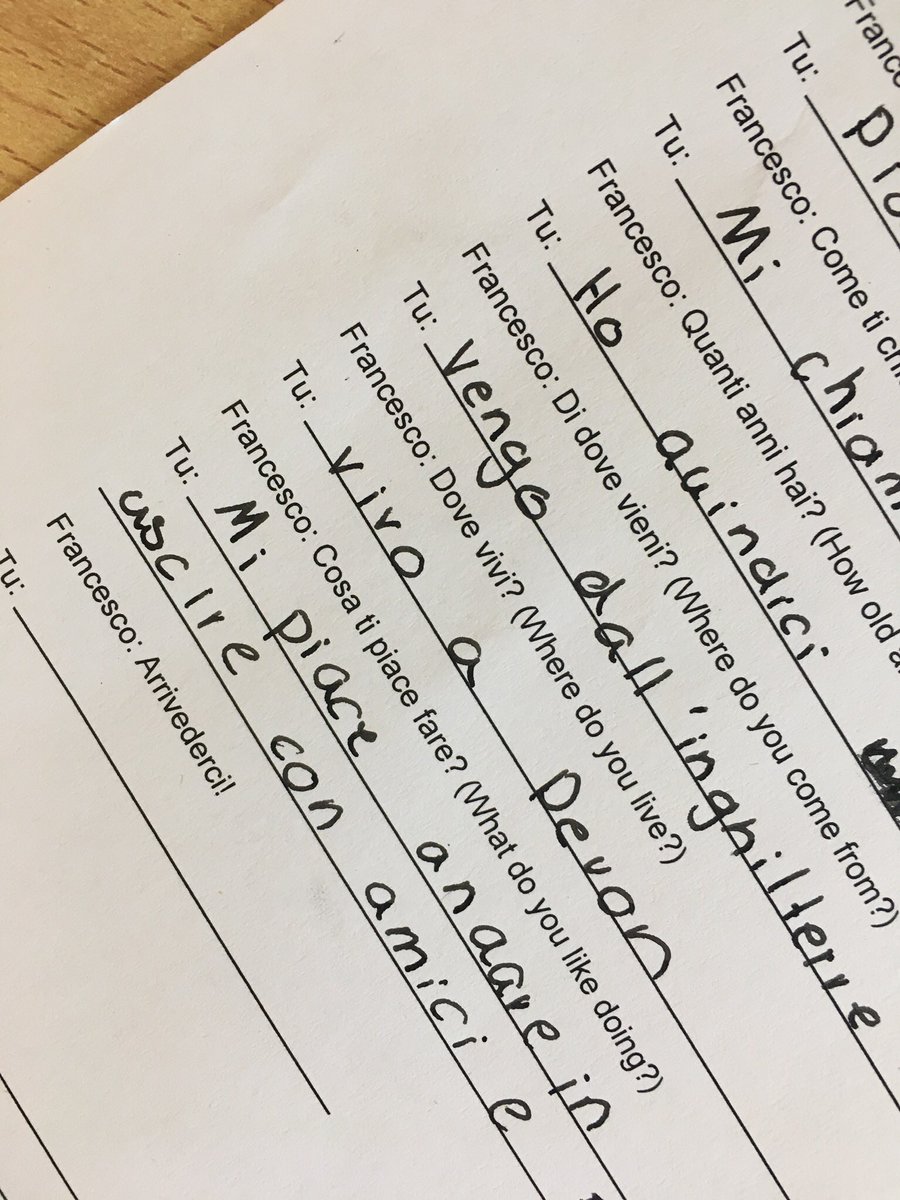 Tu:
Francesco: Come ti
Tu: Mi chiam
Francesco: Quanti anni hai? (How old
Tu: Ho quindici
Francesco: Di dove vieni? (Where do you come from?)
Tu: Vengo dall'inghilterre
Francesco: Dove vivi? (Where do you live?)
Tu: Vivo a Devon
Francesco: Cosa ti piace fare? (What do you like doing?)
Tu: Mi piace andare in
uscire con amici e
Francesco: Arrivederci!
Tu: